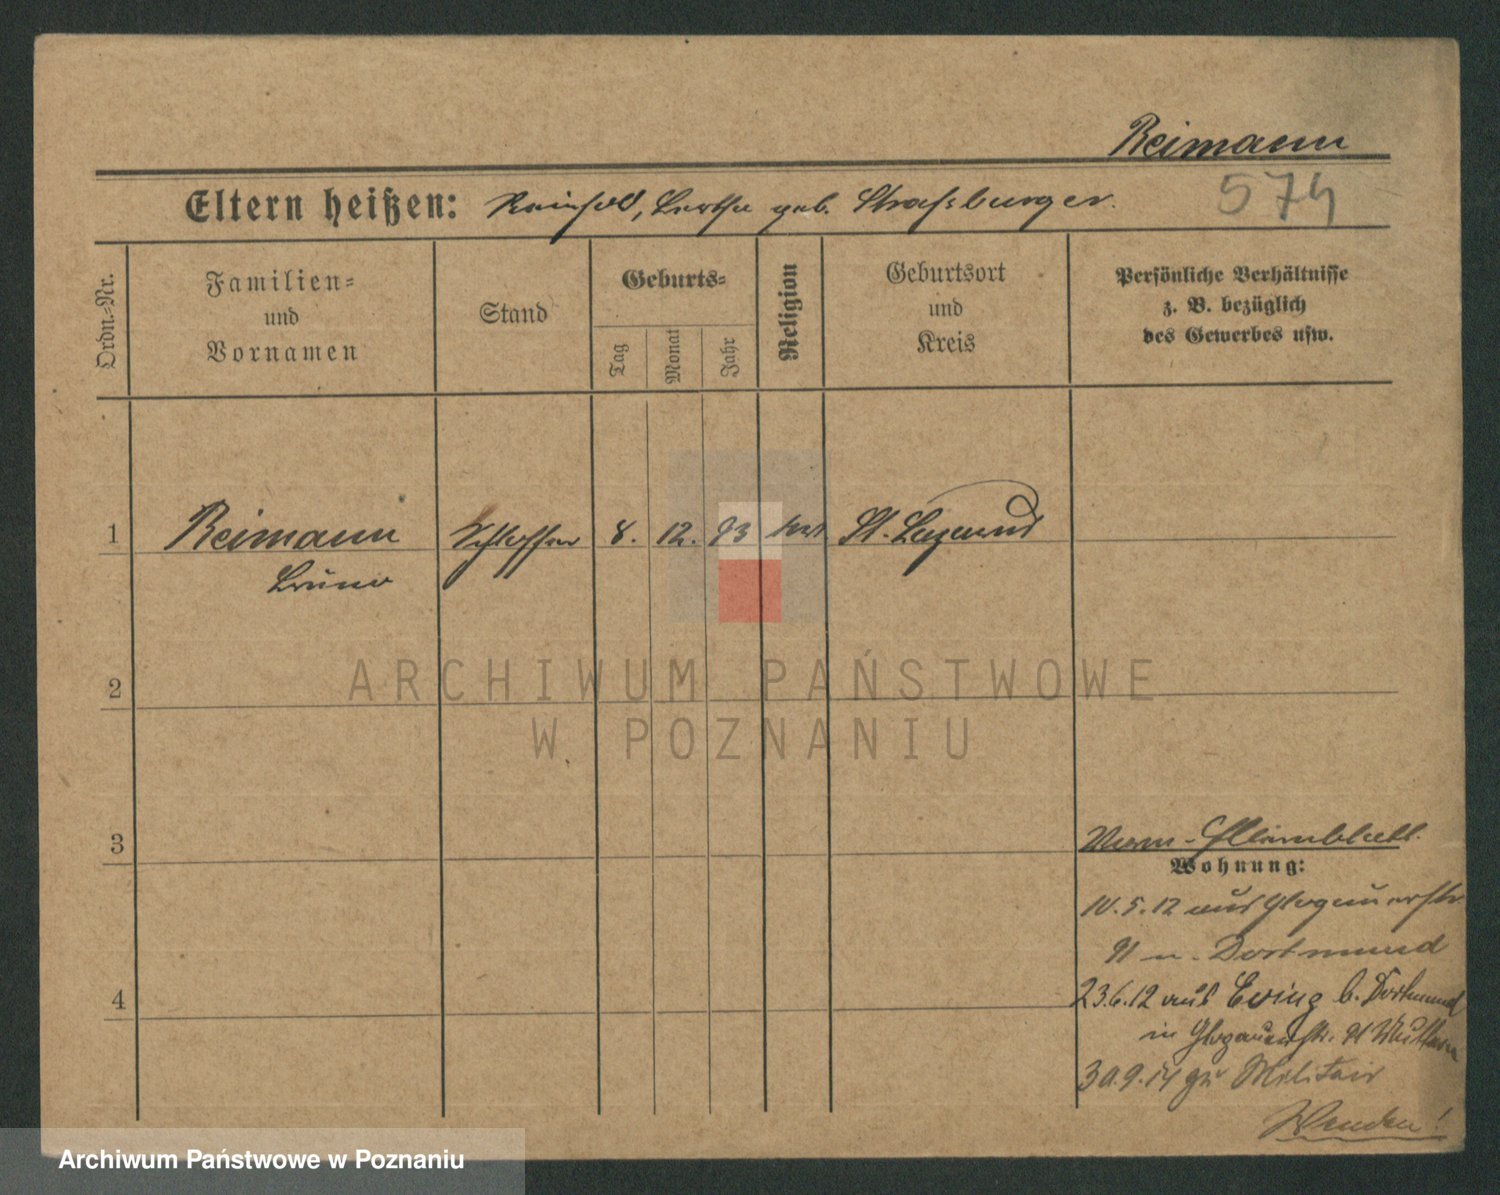 Reimann
Eltern heißen: Reinhold, Bertha geb. Straßburger.
574
Ordn.-Nr.
Familien-
und
Vornamen
Stand
Geburts-
Tag
Monat
Jahr
Religion
Geburtsort
und
Kreis
Persönliche Verhältnisse
z. B. bezüglich
des Gewerbes usw.
1
Reimann
Bruno
Schlosser
8.
12.
93
St. Lazarus
2
3
4
Wohnung:
10.5.12 aus Glogauerstr
91 n. Dortmund
23.6.12 aus Eving b. Dortmund
in Glogauerstr. 91 Mutter
30.9.14 zu Militair
Wenden!
ARCHIWUM PAŃSTWOWE
W POZNANIU
Archiwum Państwowe w Poznaniu